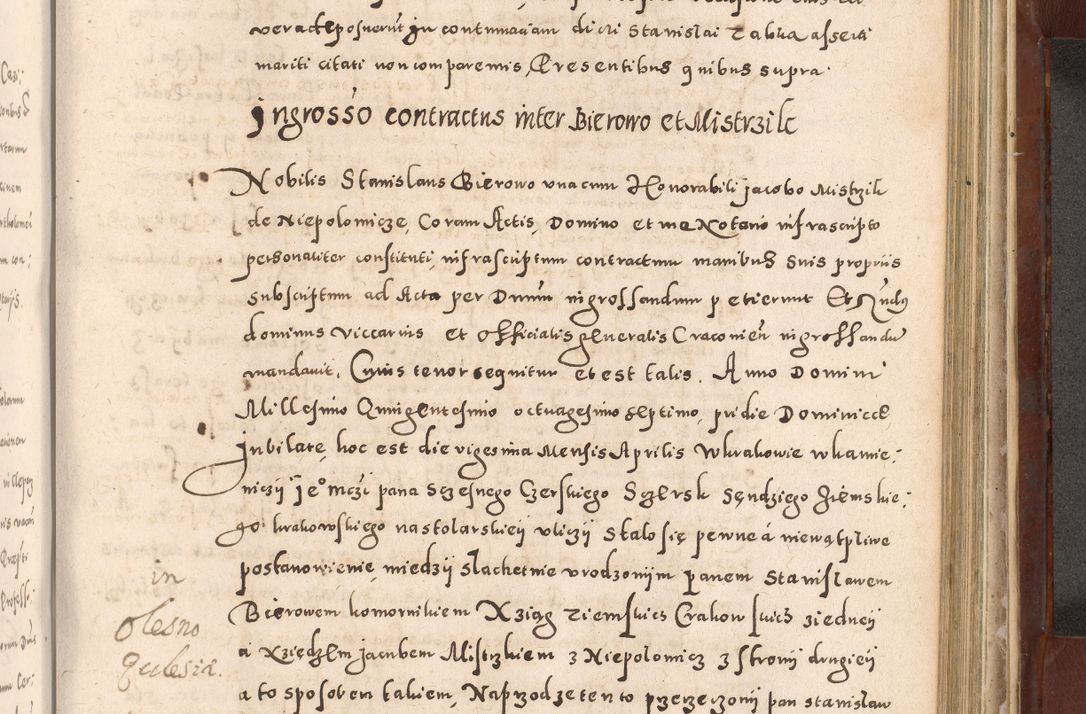 vera deposuerũt In contumaciam dicti Stanislai Zabka asserti
mariti citati non comparentis, Presentibus quibus supra
Ingrosso contractus inter Bierowo et Mistrzik
Nobilis Stanislaus Bierowo una cum Honorabili Jacobo Mistrzik
de Niepolomicze, Coram Actis, Domino et me Notario infrascripto
personaliter constituti, infrascriptum contractum manibus suis propriis
subscriptum ad Acta per Dnum ingrossandum petierunt Et Rndus
dominus viccarius et officialis generalis Cracovien ingrossandũ
mandavit. Cuius tenor sequitur et est talis. Anno Domini
Millesimo Quingentesimo octuagesimo septimo, pridie Dominicæ
Jubilate, hoc est die vigesima Mensis Aprilis w krakowie w kamie:
niczÿ Je° mczi pana Sczesnego Czerskiego Sczersk Sędziego Ziemskie:
go krakowskiego na stolarskieÿ vliczÿ stalo się pewne á niewątpliwe
postanowienie, miedzÿ slachetnie vrodzonÿm panem Stanislawem
Bierowem komornikiem Xziąg ziemskich Crakowskich ziedneÿ
á Xziędzem Jacubem Mistrzkiem z Niepolomicz z stronÿ drugieÿ
a to sposobem takiem, Naprzod ze ten to przerzeczonÿ pan stanislaw
in
Olesno
Eccclesia.